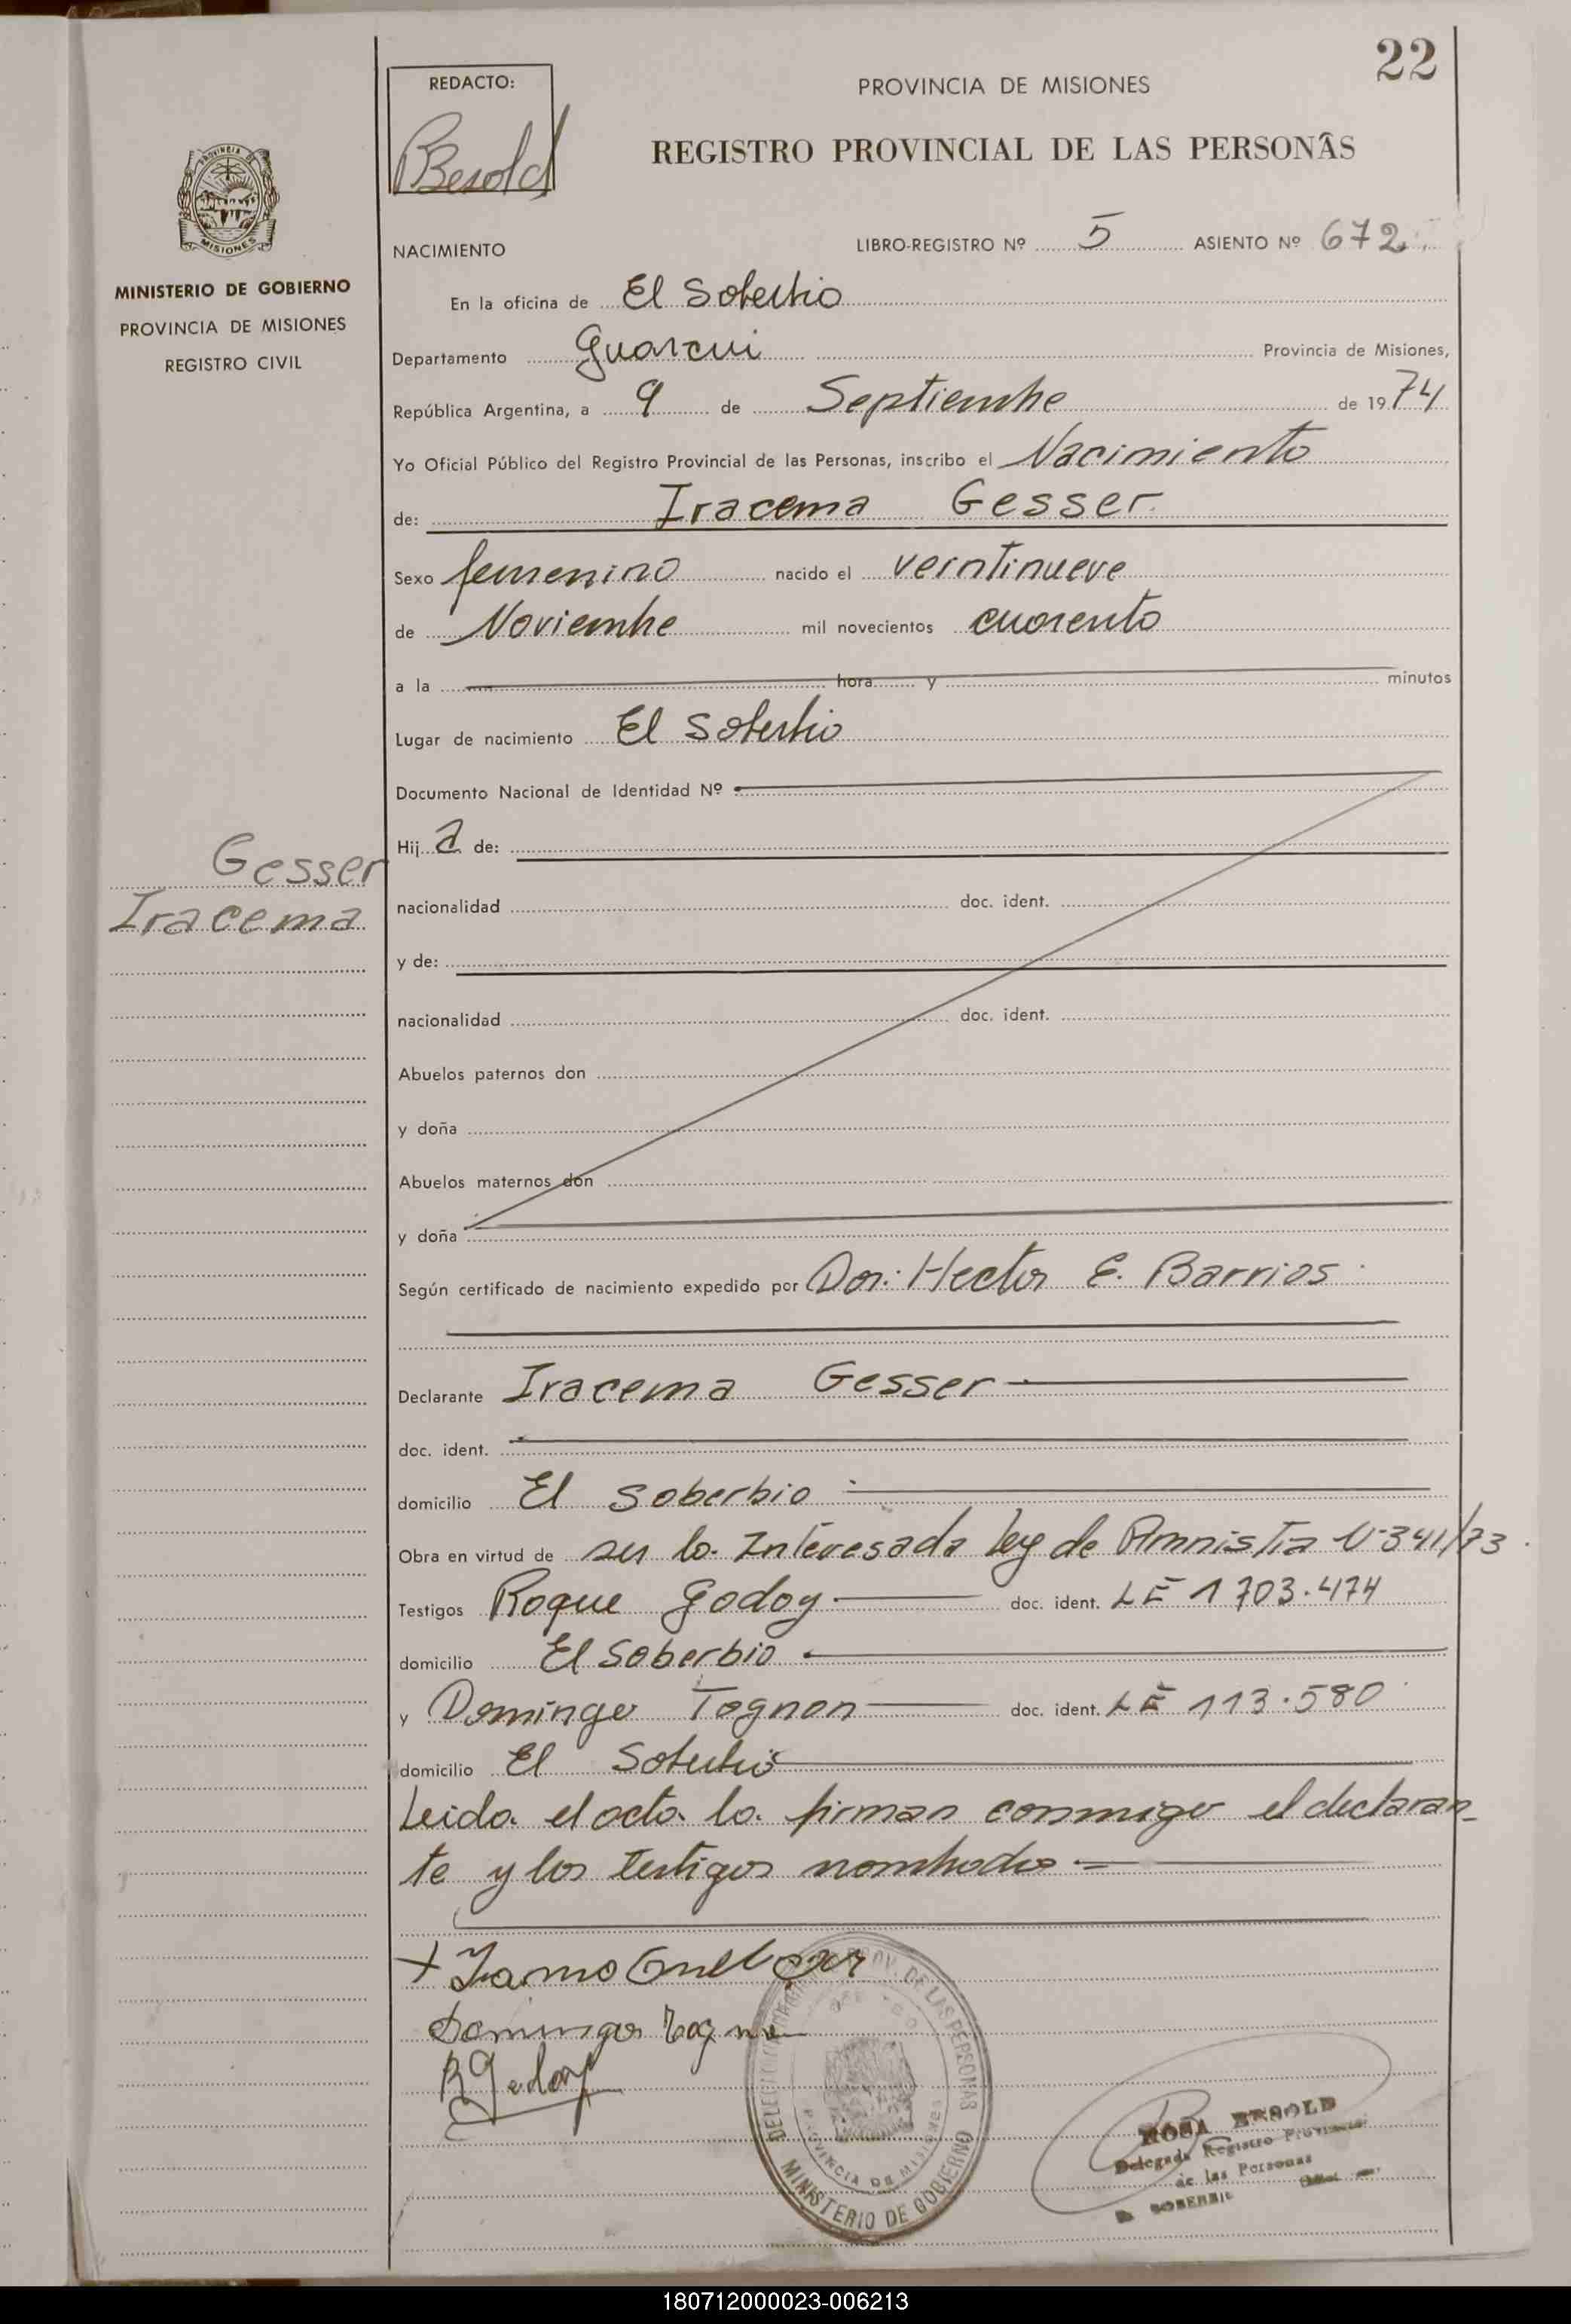 22
REDACTO:
Besold
PROVINCIA DE MISIONES
REGISTRO PROVINCIAL DE LAS PERSONAS
PROVINCIA DE
MISIONES
MINISTERIO DE GOBIERNO
PROVINCIA DE MISIONES
REGISTRO CIVIL
NACIMIENTO
LIBRO-REGISTRO Nº 5 ASIENTO Nº 672
En la oficina de El Soberbio
Departamento Guarani Provincia de Misiones,
República Argentina, a 9 de Septiembre de 1974
Yo Oficial Público del Registro Provincial de las Personas, inscribo el Nacimiento
de: Iracema Gesser
Sexo femenino nacido el veintinueve
de Noviembre mil novecientos cuarenta
a la hora y minutos
Lugar de nacimiento El Soberbio
Documento Nacional de Identidad Nº
Hija de:
Gesser
Iracema
nacionalidad doc. ident.
y de:
nacionalidad doc. ident.
Abuelos paternos don
y doña
Abuelos maternos don
y doña
Según certificado de nacimiento expedido por Dor: Hector E. Barrios
Declarante Iracema Gesser
doc. ident.
domicilio El Soberbio
Obra en virtud de ser la Interesada Ley de Amnistia N-341/73
Testigos Roque Godoy doc. ident. LE 1703.474
domicilio El Soberbio
y Domingo Tognon doc. ident. LE 113.580
domicilio El Soberbio
Leida el acta la firman conmigo el declaran-
te y los testigos nombrados
Domingo Togno
R Godoy
PROV. DE LAS PERSONAS
PROVINCIA DE MISIONES
MINISTERIO DE GOBIERNO
ROSA BESOLD
Delegada Registro Provincial
de las Personas
SOBERBIO
180712000023-006213